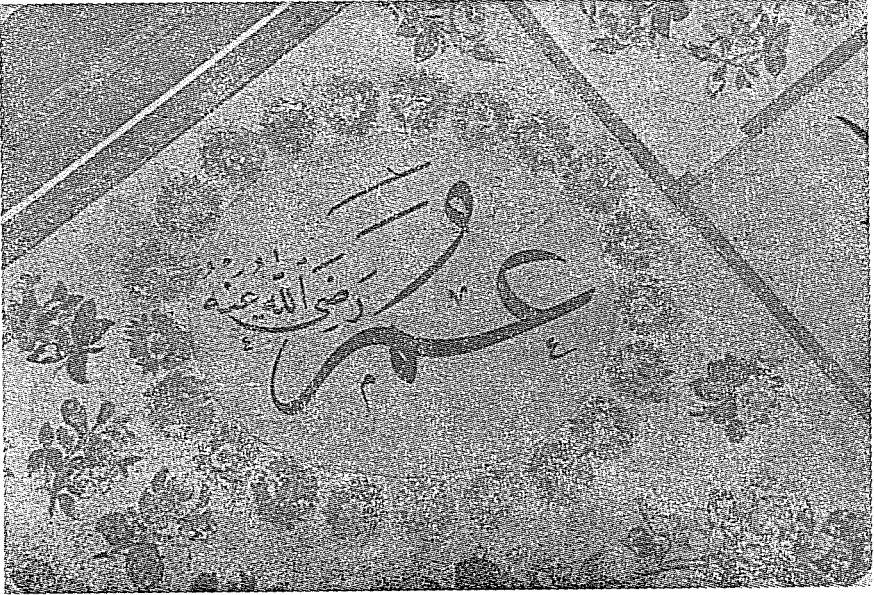 عمر
رَضِيَ اللّٰه عَنْهُ